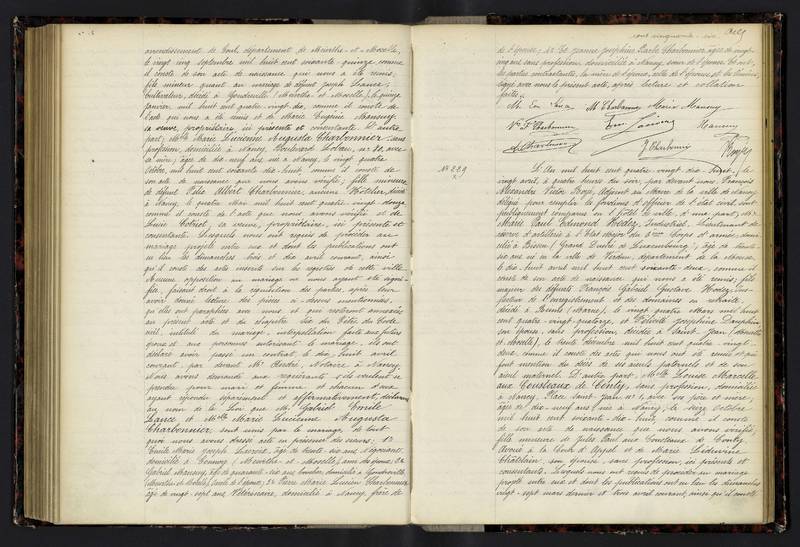 arrondissement de Toul, département de Meurthe-et-Moselle,
le vingt cinq septembre mil huit cent soixante quinze comme
il conste de son acte de naissance que nous a été remis;
fils mineur quant au mariage de défunt Joseph Lance,
Cultivateur, décédé à Gondreville (Meurthe et Moselle), le quinze
janvier mil huit cent quatre vingt dix, comme il conste de
l'acte qui nous a été remis et de Marie Eugénie Mansuy,
sa veuve, propriétaire, ici présente et consentante. D'autre
part, Mlle Marie Lucienne Augusta Charbonnier, sans
profession, domiciliée à Nancy, Boulevard Lobau, no 30, avec
sa mère; âgée de dix neuf ans, née à Nancy, le vingt quatre
Octobre, mil huit cent soixante dix huit, comme il conste de
son acte de naissance que nous avons vérifié; fille mineure
de défunt Félix Albert Charbonnier, ancien Hôtelier, décédé
à Nancy, le quatre Mai mil huit cent quatre vingt douze,
comme il conste de l'acte que nous avons vérifié et de
Louise Cotriot, sa veuve, propriétaire, ici présente et
consentante. Lesquels nous ont requis de procéder au
mariage projeté entre eux et dont les publications ont
eu lieu les dimanches trois et dix avril courant, ainsi
qu'il conste des actes inscrits sur les registres de cette ville.
Aucune opposition au mariage ne nous ayant été signi-
fiée, faisant droit à la réquisition des parties, après leur
avoir donné lecture des pièces ci-dessus mentionnées,
qu'elles ont paraphées avec nous et qui resteront annexées
au présent acte et du chapitre six du Titre du Code
civil, intitulé du mariage, interpellation faite aux futurs
époux et aux personnes autorisant le mariage, ils ont
déclaré avoir passé un contrat le dix huit avril
courant, par devant Me André, Notaire à Nancy.
Nous avons demandé aux requérants s'ils veulent se
prendre pour mari et femme et chacun d'eux
ayant répondu séparément et affirmativement, déclarons
au nom de la Loi que Mr Gabriel Emile
Lance et Mlle Marie Lucienne Augusta
Charbonnier sont unis par le mariage, de tout
quoi nous avons dressé acte en présence des sieurs: 1o
Emile Marie Joseph, âgé de trente six ans,
domicilié à (Meurthe-et-Moselle), ami des époux; 2o
Gabriel Mansuy, âgé de quarante six ans, domicilié à Gondreville
(Meurthe et Moselle), oncle de l'époux; 3o Pierre Marie Lucien Charbonnier
âgé de vingt-sept ans, Vétérinaire, domicilié à Nancy, frère de
cent cinquante-six
de l'épouse; 4o Et Jeanne Joséphine Charbonnier, âgée de vingt-
cinq ans, sans profession, domiciliée à Nancy, sœur de l'épouse. Et ont,
les parties contractantes, la mère de l'époux, celle de l'épouse et les témoins,
signé avec nous le présent acte, après lecture et collation
faites.
M. Charbonnier Mansuy
Vve F. Charbonnier Lance Mansuy
Charbonnier Boyer
No 229
L'An mil huit cent quatre vingt dix huit, le
vingt avril, à quatre heures du soir, par devant nous, François
Alexandre Victor Boyer, Adjoint au Maire de la ville de Nancy,
délégué pour remplir les fonctions d'officier de l'état civil, sont
publiquement comparus en l'hôtel de ville, d'une part, Mr
Marie Paul Edmond Hodez, Industriel, Lieutenant de
réserve d'artillerie à l'État Major du 6me Corps d'armée, domi-
cilié à Bissen (Grand Duché de Luxembourg), âgé de trente
six ans, né en la ville de Verdun, département de la Meuse,
le dix huit avril mil huit cent soixante deux, comme il
conste de son acte de naissance qui nous a été remis; fils
majeur des défunts François Gabriel Gustave Hodez, Ins-
pecteur de l'enregistrement et des domaines en retraite,
décédé à Reims (Marne), le vingt quatre Mars mil huit
cent quatre-vingt quatorze, et Joséphine Dauphin,
son épouse, sans profession, décédée à Saint Jean (Meurthe
et Moselle), le trente décembre mil huit cent quatre-vingt
deux, comme il conste des actes qui nous ont été remis et qui
font mention du décès de ses aïeuls paternels et de son
aïeul maternel. Et d'autre part, Mlle Louise Marcelle
aux Cousteaux de Conty, sans profession, domiciliée
à Nancy, Place Saint-Jean no 1, avec ses père et mère;
âgée de dix-neuf ans, née à Nancy, le seize Octobre
mil huit cent soixante-dix-huit, comme il conste
de son acte de naissance que nous avons vérifié,
fille mineure de Jules Paul aux Cousteaux de Conty,
Avoué à la Cour d'Appel et de Marie Lidwine
Châtelain, son épouse, sans profession, ici présents et
consentants. Lesquels nous ont requis de procéder au mariage
projeté entre eux et dont les publications ont eu lieu les dimanches
vingt-sept mars dernier et trois avril courant, ainsi qu'il conste